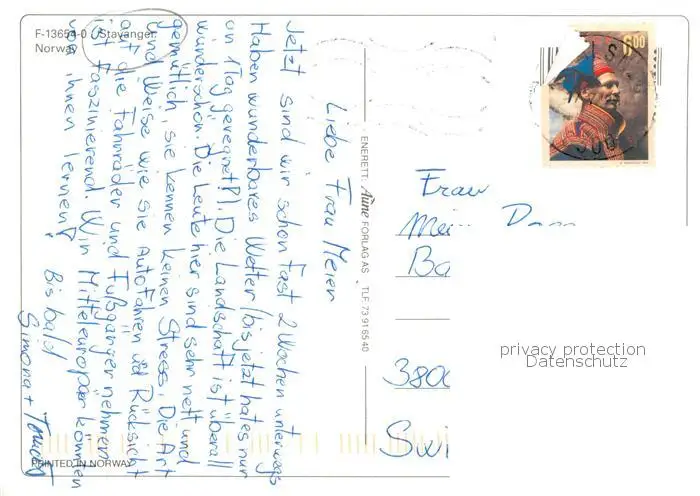 F-13654-0 Stavanger
Norway
Liebe Frau Meier
Jetzt sind wir schon fast 2 Wochen unterwegs +
Haben wunderbares Wetter (bis jetzt hat es nur
an 1 Tag geregnet!?). Die Landschaft ist überall
wunderschön. Die Leute hier sind sehr nett und
gemütlich, sie kennen keinen Stress. Die Art
und Weise wie sie Autofahren u Rücksicht
auf die Fahrräder und Fußgänger nehmen
ist faszinierend. Wir Mitteleuropäer können
von ihnen lernen!
Bis bald
Simona +
ENERETT: Aune FORLAG AS TLF. 73 91 65 40
6.00
Frau
380
Swi
privacy protection
Datenschutz
PRINTED IN NORWAY